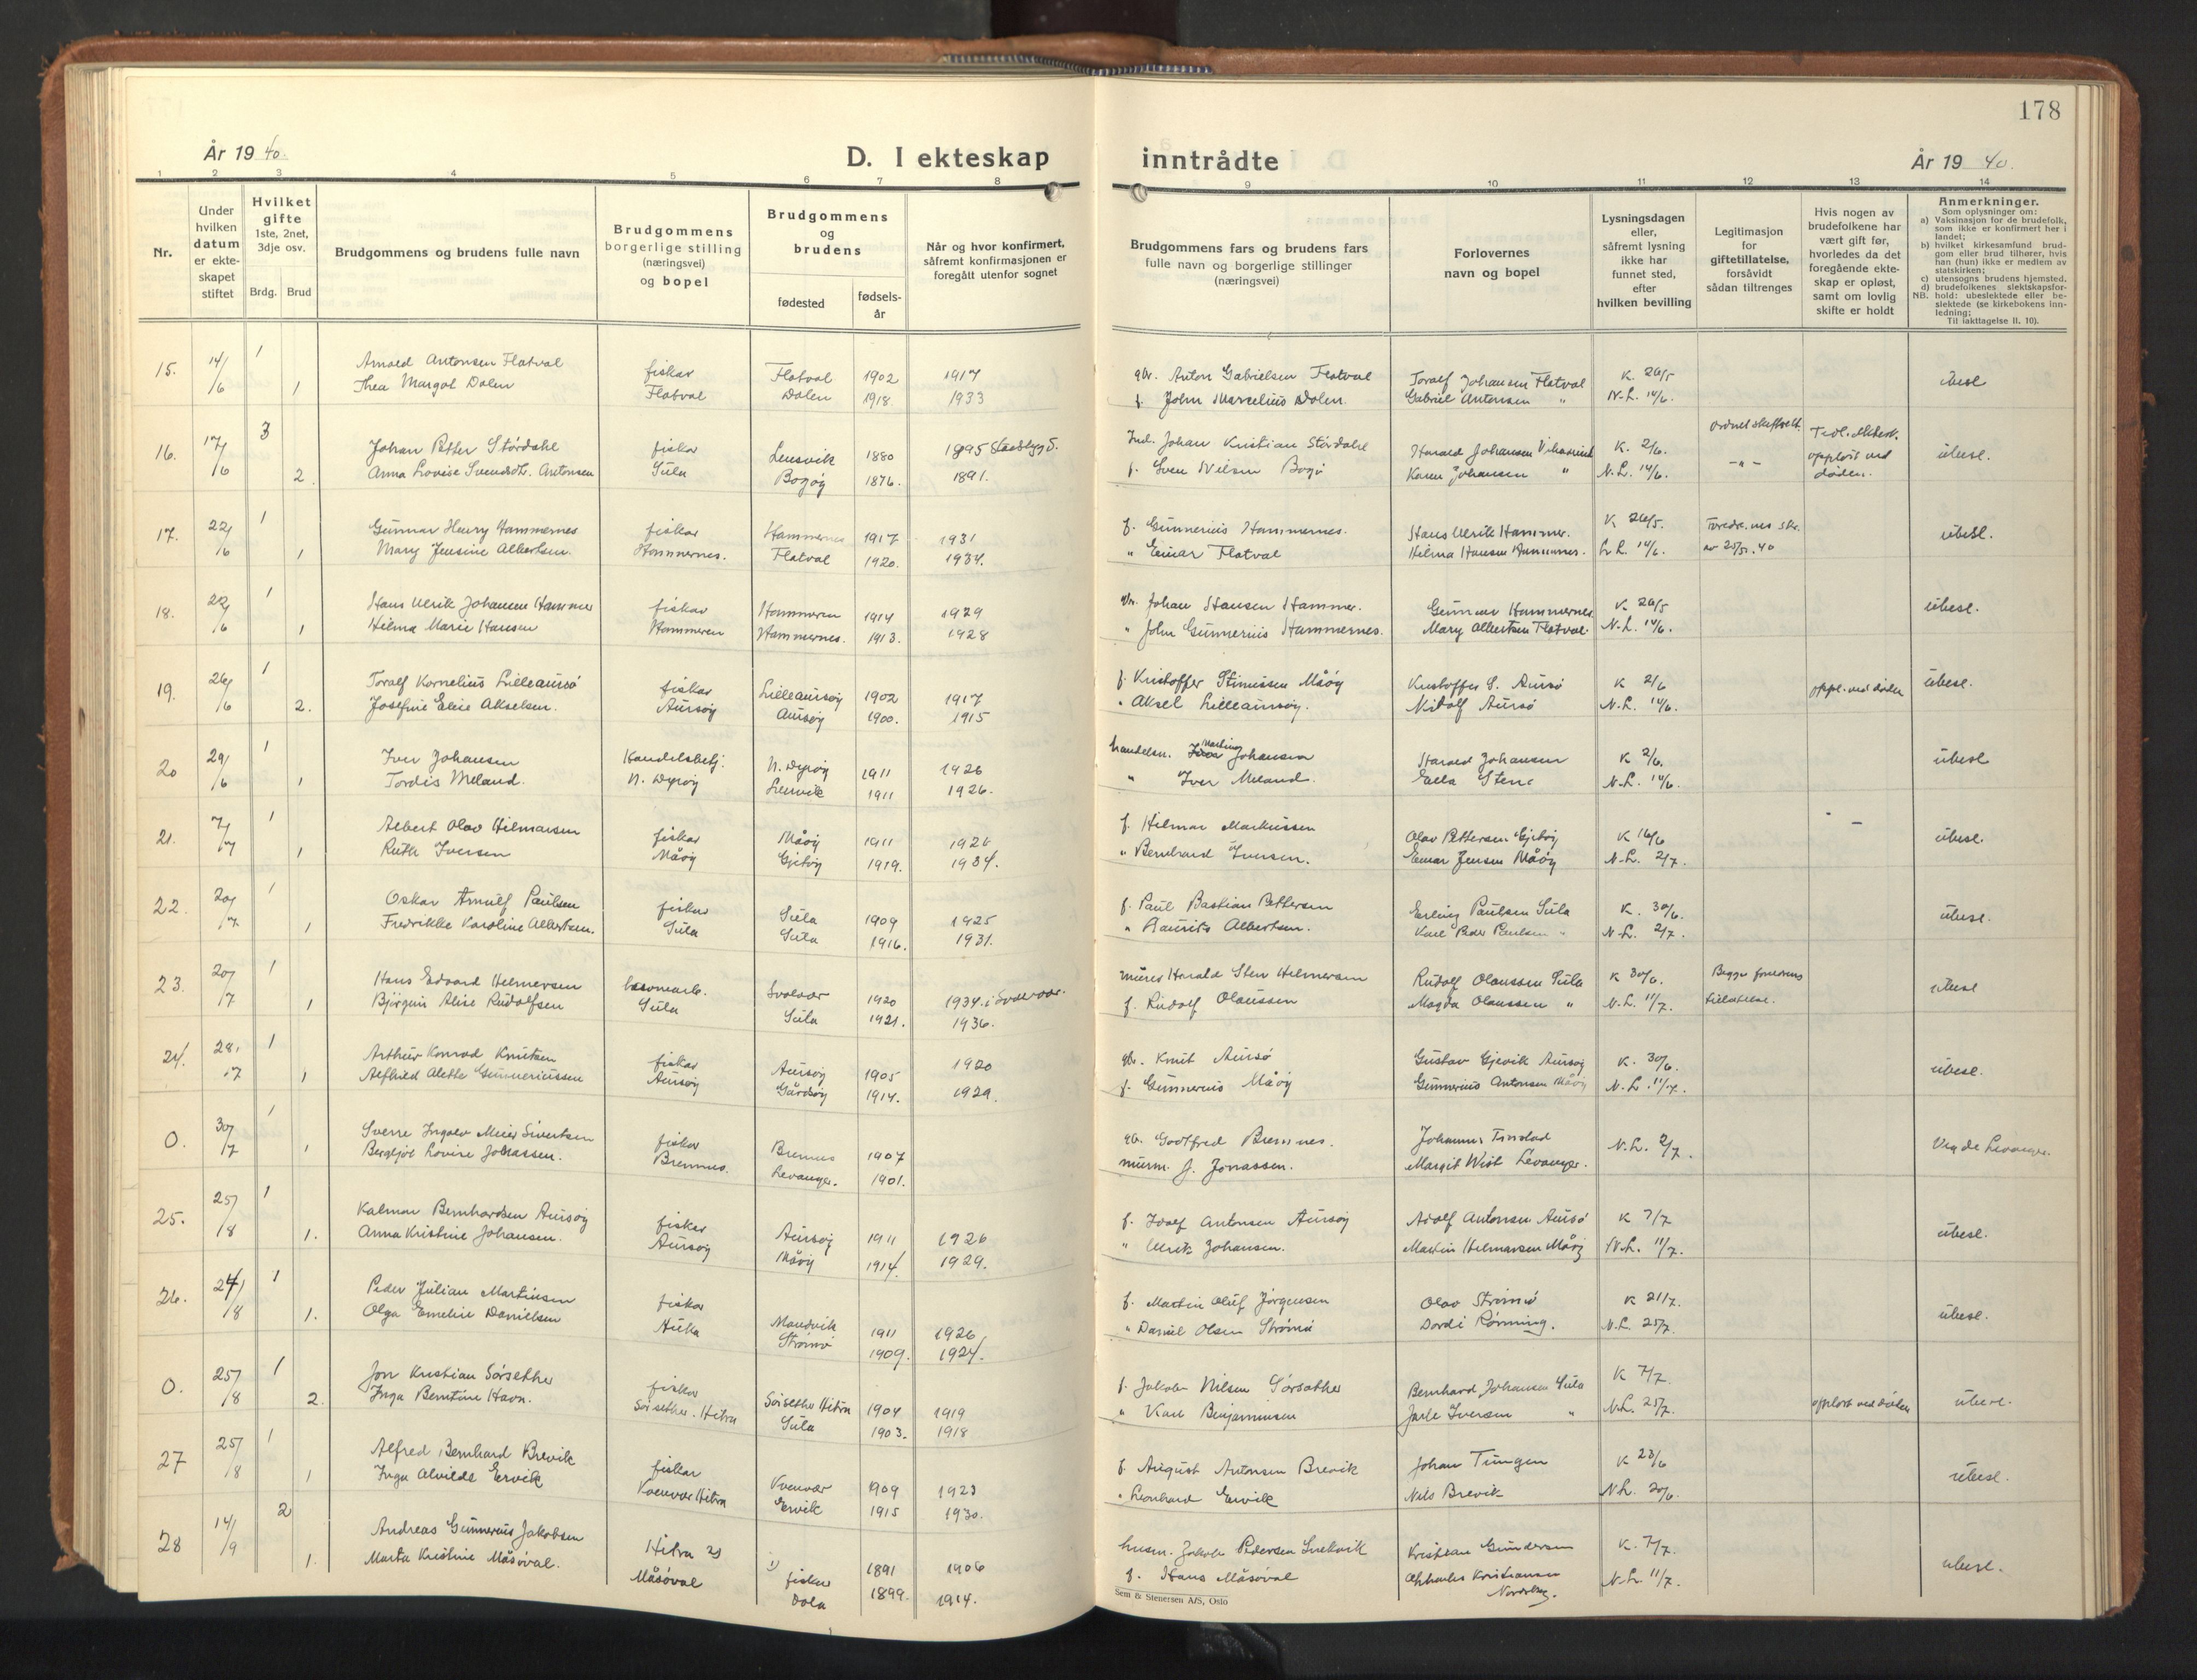 178
År 1940.
D. I ekteskap
inntrådte
År 1940.
1 2 3 4 5 6 7 8 9 10 11 12 13 14
Nr.
Under hvilken datum er ekteskapet stiftet
Hvilket gifte 1ste, 2net, 3dje osv.
Brdg. Brud
Brudgommens og brudens fulle navn
Brudgommens borgerlige stilling (næringsvei) og bopel
Brudgommens og brudens
fødested
fødsels-år
Når og hvor konfirmert, såfremt konfirmasjonen er foregått utenfor sognet
Brudgommens fars og brudens fars fulle navn og borgerlige stillinger (næringsvei)
Forlovernes navn og bopel
Lysningsdagen eller, såfremt lysning ikke har funnet sted, efter hvilken bevilling
Legitimasjon for giftetillatelse, forsåvidt sådan tiltrenges
Hvis nogen av brudefolkene har vært gift før, hvorledes da det foregående ekteskap er opløst, samt om lovlig skifte er holdt
Anmerkninger.
Som oplysninger om:
a) Vaksinasjon for de brudefolk, som ikke er konfirmert her i landet;
b) hvilket kirkesamfund brudgom eller brud tilhører, hvis han (hun) ikke er medlem av statskirken;
c) utensogns brudens hjemsted.
d) brudefolkenes slektskapsforhold: ubeslektede eller beslektede (se kirkebokens innledning;
NB.
Til iakttagelse II. 10).
15. 14/6 1 Arnold Antonsen Flatval fiskar Flatval 1902 1917 gbr. Anton Gabrielsen Flatval Toralf Johansen Flatval K. 26/5 ubesl
1 Thea Margot Dalen Flatval Dalen 1918 1933 f. John Marselius Dalen. Gabriel Antonsen " N.L. 14/6.
16. 17/6 3 Johan Petter Stördahl fiskar Lensvik 1880 1895 Stadsbygd. Ind. Johan Kristian Stördahl Harald Johansen K. 2/6. ubesl.
2. Anna Lovise Svendsdt. Antonsen Sula Bogøy 1876. 1891. f. Sven Nilsen Bogö Karen Johansen " N.L. 14/6. -"- opplöst ved döden.
17. 22/6 1 Gunnar Henry Hammernes fiskar Hammernes 1917 1931 f. Gunnerius Hammernes. Hans Ulrik Hammer. K 26/5. ubesl.
1 Mary Jensine Albertsen. Hammernes. Flatval 1920. 1934. " Einar Flatval Hilma Hansen Hammernes. 14/6. av 25/5.40
18. 22/6 1 Hans Ulrik Johansen Hammer fiskar Hammeren 1914 1929 gbr. Johan Hansen Hammer. Gunnar Hammernes K 26/5 ubesl.
1 Hilma Marie Hansen Hammeren Hammernes. 1913. 1928 " John Gunnerius Hammernes. Mary Albertsen Flatval. N.L. 14/6.
19. 26/6 1 Toralf Kornelius Lilleaursö fiskar Lilleaursøy 1902 1917 f. Kristoffer Måöy Kristoffer S. Aursö K 2/6 oppl. ved döden ubesl.
2. Josefine Elise Akselsen. Aursøy Aursøy 1900. 1915 " Aksel Lilleaursøy. Aursö N.L. 14/6.
20 29/6 1 Iver Johansen Handelsbetj. N. Dyrøy 1911 1926 handelsm. Martin Johansen Harald Johansen K 2/6. ubesl
1 Tordis Meland. N. Dyrøy Lensvik 1911 1926. " Iver Meland. Ella Stene N.L. 14/6.
21. 7/7 1 Albert Olav Hilmarsen fiskar Måöy 1911 1926 f. Hilmar Markussen Olav Pettersen Gjetöy K 16/6 ubesl.
1 Ruth Iversen Måöy Gjetöy 1919. 1934. " Bernhard Iversen. Einar Jensen Måöy N.L. 2/7.
22. 20/7 1 Oskar Arnulf Paulsen fiskar Sula 1909 1925 f. Paul Bastian Pettersen Erling Paulsen Sula K. 30/6. ubesl.
1 Fredrikke Karoline Albertsen. Sula Sula 1916. 1931. " Laurits Albertsen. Karl Peder Paulsen " N.L. 2/7.
23. 20/7 1 Hans Edvard Helmersen Svolvær 1920 1934 i Svolvær. murer Harald Sten Helmersen Rudolf Olaussen Sula K 30/6. Begge foreldres ubesl
1 Björgun Alise Rudolfsen Sula Sula 1921. 1936. f. Rudolf Olaussen Magda Olaussen " N.L. 11/7. tillatelse.
24. 28/7 1 Arthur Konrad Knutsen fiskar Aursøy 1905 1920 gbr. Knut Aursö Gustav Gjevik Aursøy K. 30/6. ubesl.
1 Alfhild Alette Gunneriussen Aursøy Gårdsøy 1914. 1929. f. Gunnerius Måöy Gunnerius Antonsen Måöy N.L. 11/7.
0. 30/7 1 Sverre Ingolv Meier Sivertsen fiskar Bremnes 1907 gb. Godtfred Bremnes. Johannes Tinstad N.L. 2/7. Vigde Levanger.
1 Bergljot Lovise Jonassen. Bremnes. Levanger. 1901. murm. J. Jonassen. Margit Wist Levanger.
25. 25/8 1 Kalmar Bernhardsen Aursøy fiskar Aursøy 1911 1926 f. Antonsen Aursøy Adolf Antonsen Aursö K 7/7 ubesl.
1. Anna Kristine Johansen. Aursøy Måöy 1914. 1929. " Ulrik Johansen. Martin Helmarsen Måöy N.L. 11/7.
26. 24/8 1 Peder Julian Martinsen fiskar 1911 1926 f. Martin Oluf Jörgensen Olav Strömö K 21/7. ubesl.
1. Olga Emelie Danielsen Auka Strömö 1909. 1924. " Daniel Olsen Strömö Dordi Rönning. N.L. 25/7.
0. 25/8 1 Jon Kristian Sörsether fiskar Sörsether Hitra 1904 1919 f. Jakob Nilsen Sörsether Bernhard Johansen Sula K 7/7. ubesl.
2. Inga Berntine Havn. Sörsether. Hitra Sula 1903. 1918 " Karl Benjaminsen Jarle Iversen " N.L. 25/7. opplöst ved döden
27 25/8 1 Alfred Bernhard Brevik fiskar Kvenvær 1909 1923 f. August Antonsen Brevik Johan Tungen K 23/6 ubesl.
1 Inga Alvilde Ervik Kvenvær Hitra Ervik 1915 1930. " Leonhard Ervik Nils Brevik N.L. 20/6.
28 14/9 2 Andreas Gunnerius Jakobsen Hitra 2) 1) fisker 1891 1906 husm. Jakob Pedersen Kristian Gundersen K. 7/7. ubesl.
1. Marta Kristine Måsöval. Måsöval Dola 1899. 1914. f. Hans Måsöval Charles Kristiansen N.L. 11/7.
Sem & Stenersen A/S, Oslo